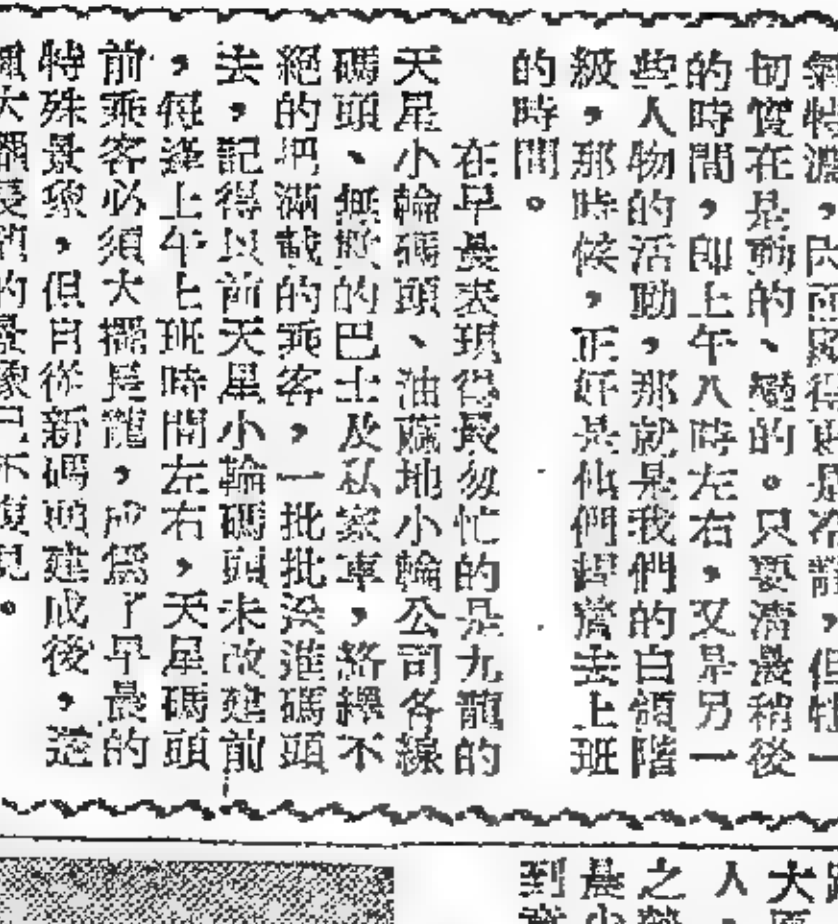 旬實在是動的、變的。只要清晨稍後
的時間，即上午八時左右，又是另一
些人物的活動，那就是我們的白領階
級，那時候，正好是他們趕着去上班
的時間。
在早晨表現得最匆忙的是九龍的
天星小輪碼頭、油蔴地小輪公司各線
碼頭、無數的巴士及私家車，絡繹不
絕的把滿載的乘客，一批批送進碼頭
去，記得以前天星小輪碼頭未改建前
，每逢上午上班時間左右，天星碼頭
前乘客必須大擺長龍，成爲了早晨的
特殊景象，但自從新碼頭建成後，這
種大擺長龍的景象已不復見。
大
人
之
晨
到